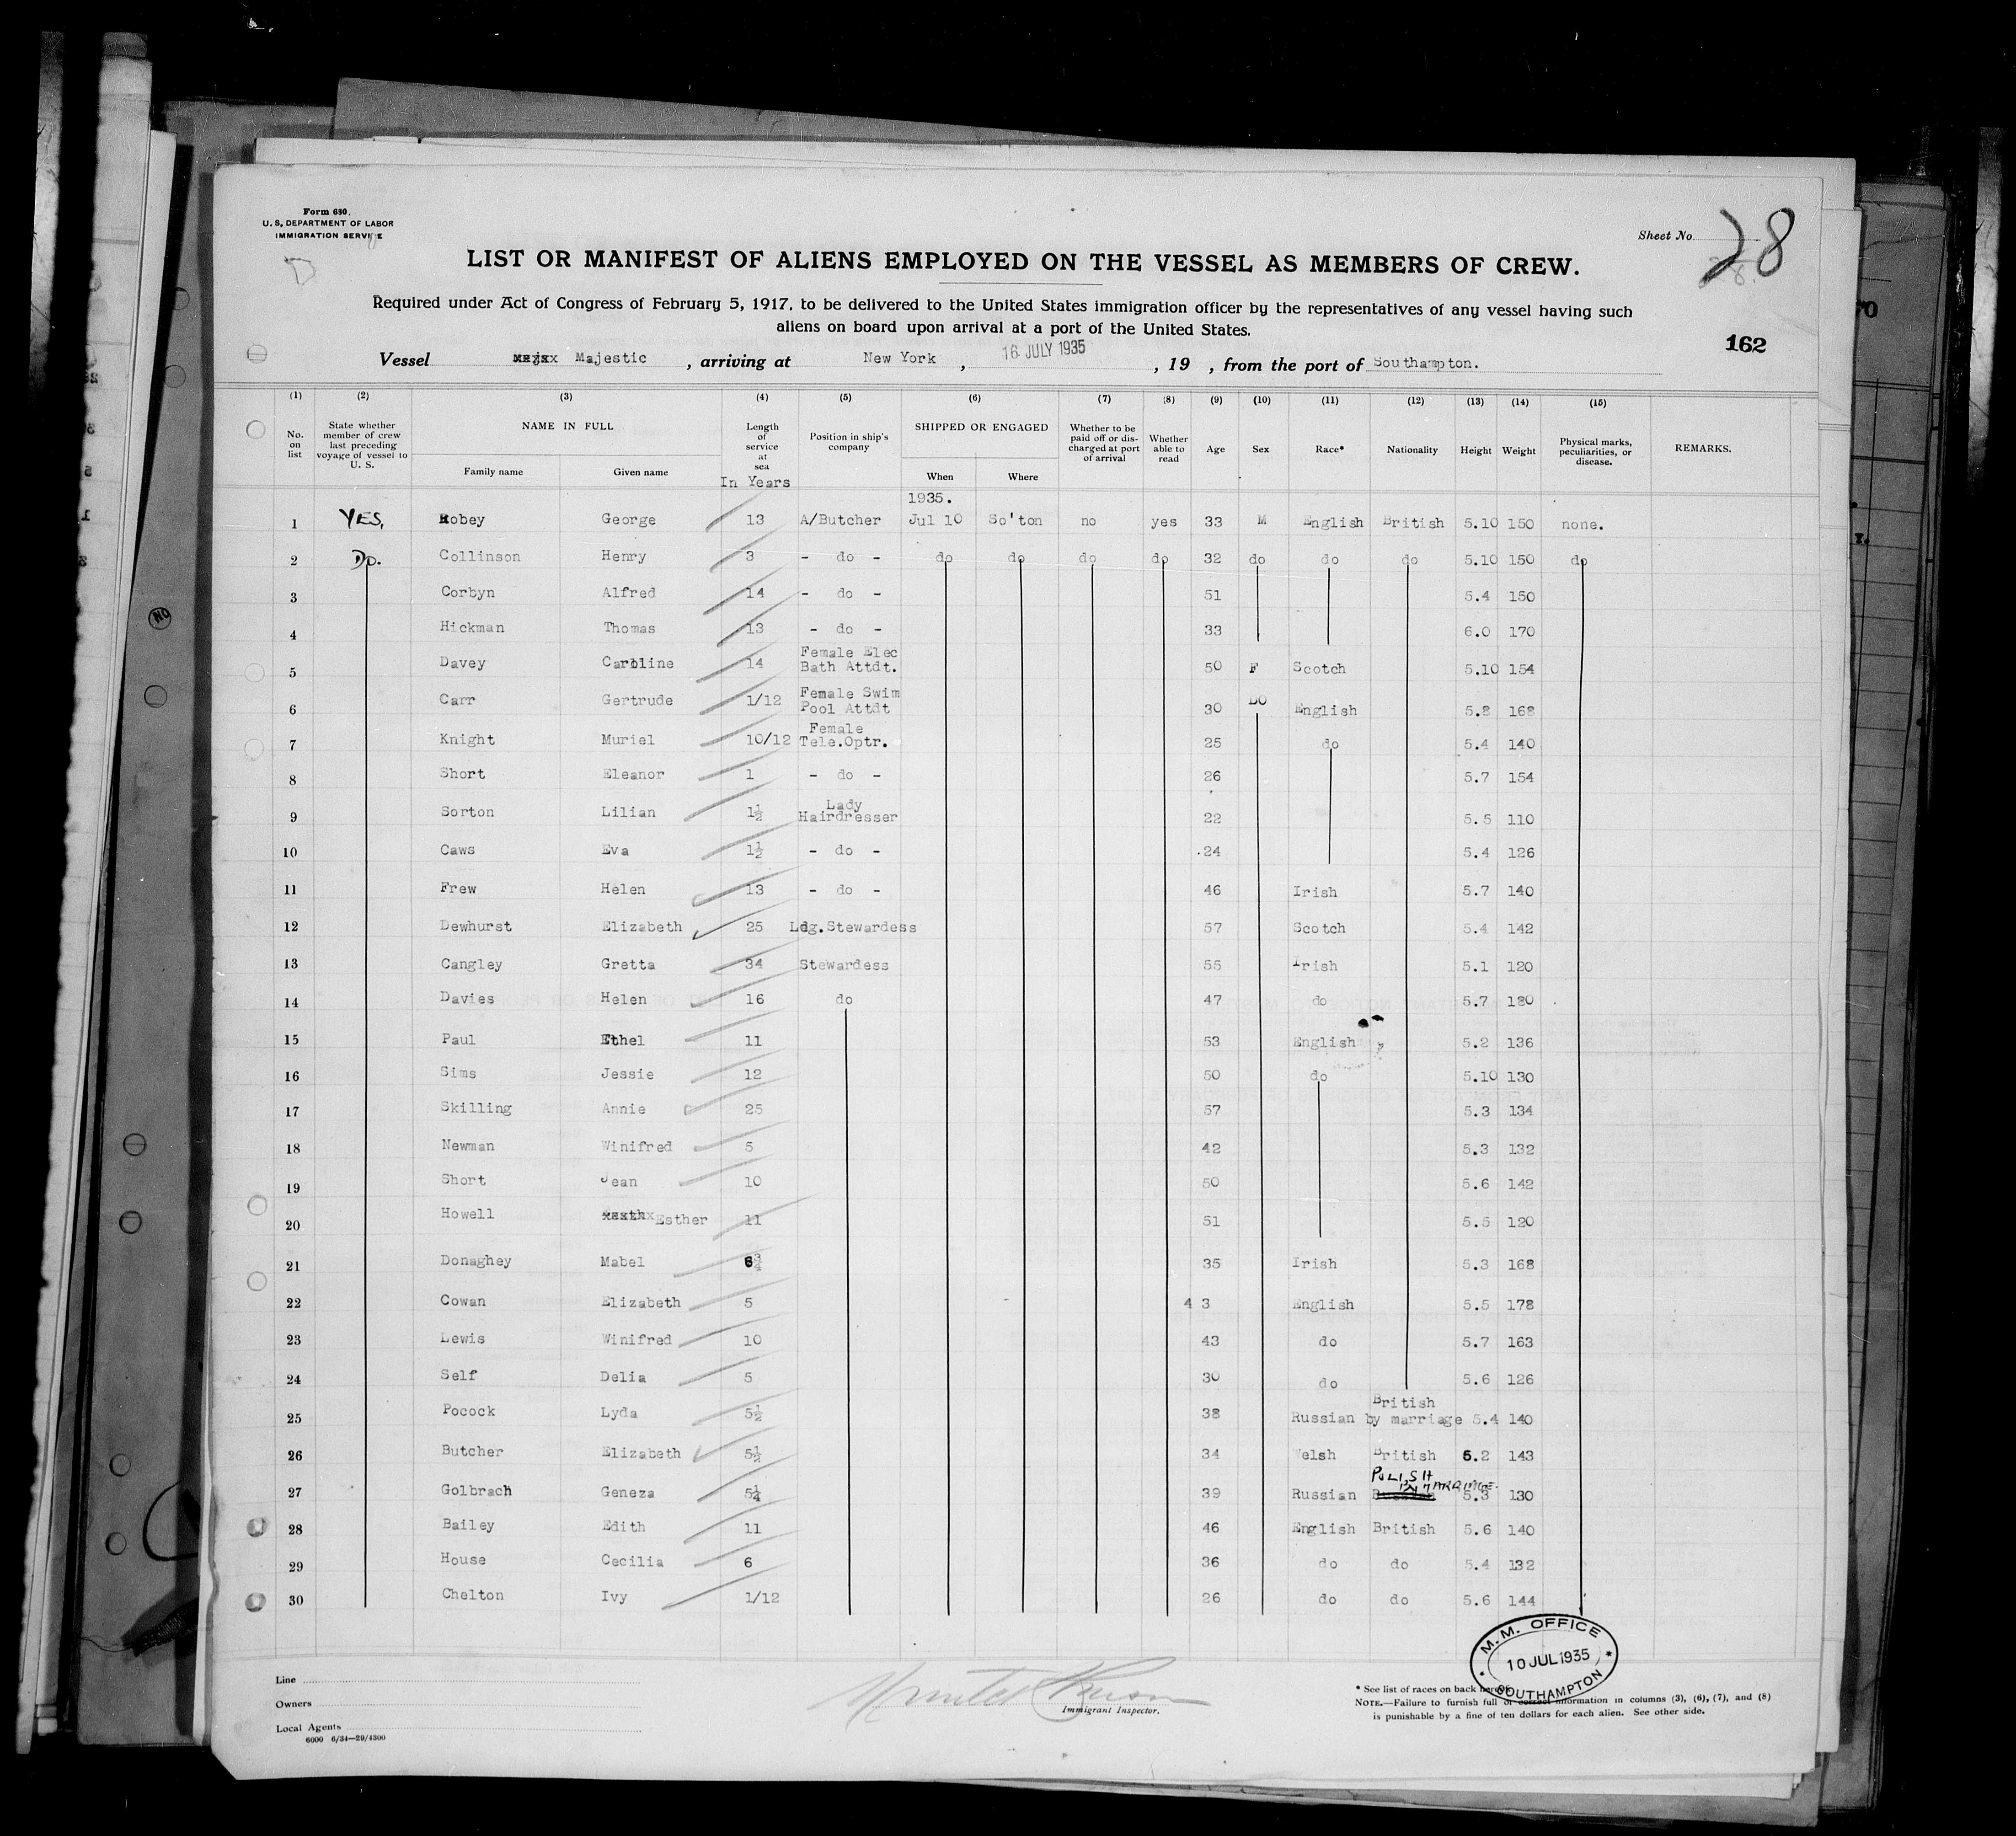 Form 680.
U. S. DEPARTMENT OF LABOR
IMMIGRATION SERVICE
Sheet No. 28
LIST OR MANIFEST OF ALIENS EMPLOYED ON THE VESSEL AS MEMBERS OF CREW.
Required under Act of Congress of February 5, 1917, to be delivered to the United States immigration officer by the representatives of any vessel having such
aliens on board upon arrival at a port of the United States.
162
Vessel Majestic , arriving at New York , 16 JULY 1935 , 19 , from the port of Southampton.
(1) (2) (3) (4) (5) (6) (7) (8) (9) (10) (11) (12) (13) (14) (15)
No. on list State whether member of crew last preceding voyage of vessel to U. S. NAME IN FULL Family name Given name Length of service at sea In Years Position in ship's company SHIPPED OR ENGAGED When Where Whether to be paid off or discharged at port of arrival Whether able to read Age Sex Race* Nationality Height Weight Physical marks, peculiarities, or disease. REMARKS.
1935.
1 YES, Robey George 13 A/Butcher Jul 10 So'ton no yes 33 M English British 5.10 150 none.
2 Do. Collinson Henry 3 - do - do do do do 32 do do do 5.10 150 do
3 Corbyn Alfred 14 - do - 51 5.4 150
4 Hickman Thomas 13 - do - 33 6.0 170
5 Davey Caroline 14 Female Elec Bath Attdt. 50 F Scotch 5.10 154
6 Carr Gertrude 1/12 Female Swim Pool Attdt 30 DO English 5.8 168
7 Knight Muriel 10/12 Female Tele.Optr. 25 do 5.4 140
8 Short Eleanor 1 - do - 26 5.7 154
9 Sorton Lilian 1½ Lady Hairdresser 22 5.5 110
10 Caws Eva 1½ - do - 24 5.4 126
11 Frew Helen 13 - do - 46 Irish 5.7 140
12 Dewhurst Elizabeth 25 Ldg.Stewardess 57 Scotch 5.4 142
13 Cangley Gretta 34 Stewardess 55 Irish 5.1 120
14 Davies Helen 16 do 47 do 5.7 180
15 Paul Ethel 11 53 English 5.2 136
16 Sims Jessie 12 50 do 5.10 130
17 Skilling Annie 25 57 5.3 134
18 Newman Winifred 5 42 5.3 132
19 Short Jean 10 50 5.6 142
20 Howell Esther 11 51 5.5 120
21 Donaghey Mabel 6¾ 35 Irish 5.3 168
22 Cowan Elizabeth 5 4 3 English 5.5 178
23 Lewis Winifred 10 43 do 5.7 163
24 Self Delia 5 30 do 5.6 126
25 Pocock Lyda 5½ 38 Russian British by marriage 5.4 140
26 Butcher Elizabeth 5½ 34 Welsh British 5.2 143
27 Golbrach Geneza 5¼ 39 Russian POLISH BY MARRIAGE 5.3 130
28 Bailey Edith 11 46 English British 5.6 140
29 House Cecilia 6 36 do do 5.4 132
30 Chelton Ivy 1/12 26 do do 5.6 144
M.M. OFFICE
10 JUL 1935
SOUTHAMPTON
Line
Owners
Local Agents
6000 6/34—29/4300
Immigrant Inspector.
* See list of races on back hereof.
NOTE.—Failure to furnish full or correct information in columns (3), (6), (7), and (8)
is punishable by a fine of ten dollars for each alien. See other side.